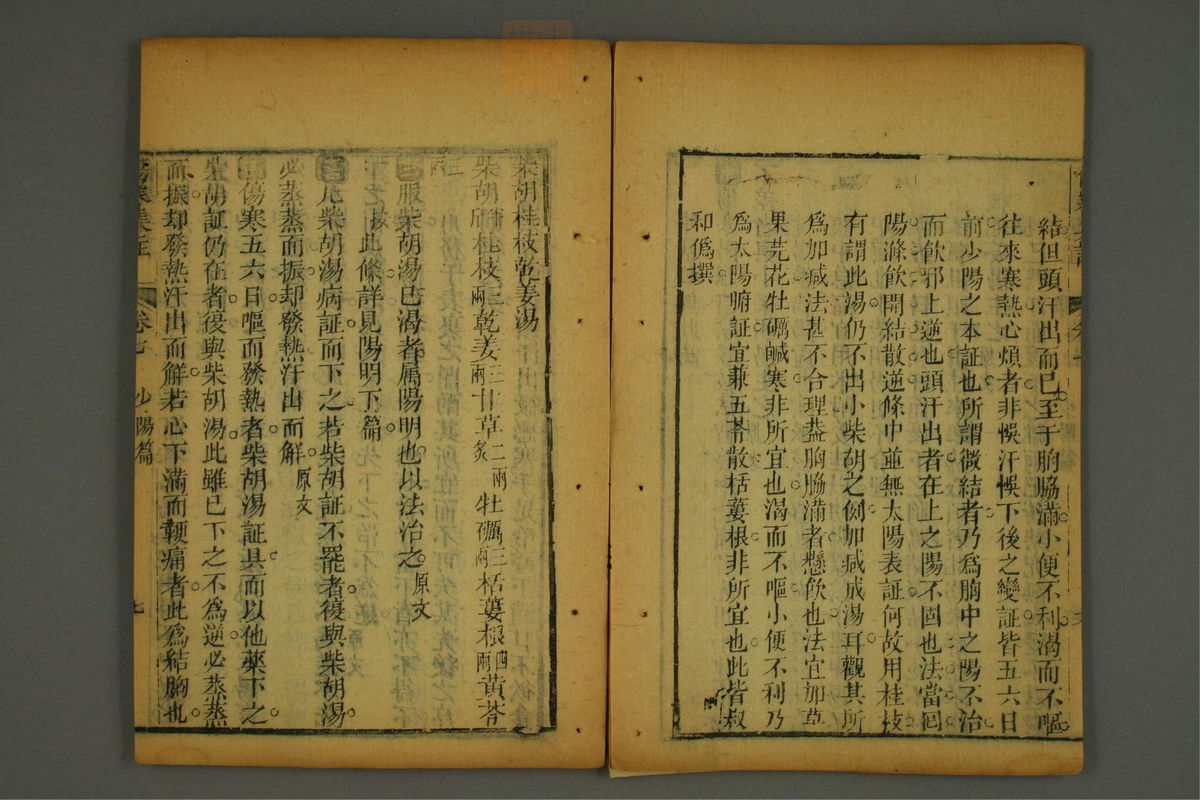 結但頭汗出而已至于胸脇滿小便不利渴而不嘔
往來寒熱心煩者非悞汗悞下後之變証皆五六日
前少陽之本証也所謂微結者乃爲胸中之陽不治
而飲邪上逆也頭汗出者在上之陽不固也法當囘
陽滌飲開結散逆條中並無太陽表証何故用桂枝
有謂此湯仍不出小柴胡之例加減成湯耳觀其所
爲加減法甚不合理葢胸脇滿者懸飲也法宜加草
果芫花牡礪鹹寒非所宜也渴而不嘔小便不利乃
爲太陽腑証宜兼五苓散栝蔞根非所宜也此皆叔
和僞撰
柴胡桂枝乾姜湯
柴胡 桂枝三兩乾姜三兩甘草二兩炙牡礪三兩栝蔞根四兩黃芩
服柴胡湯已渴者属陽明也以法治之原文
此條詳見陽明下篇
凡柴胡湯病証而下之若柴胡証不罷者復與柴胡湯
必蒸蒸而振却發熱汗出而解原文
傷寒五六日嘔而發熱者柴胡湯証具而以他藥下之
柴胡証仍在者復與柴胡湯此雖已下之不爲逆必蒸蒸
而振却發熱汗出而解若心下滿而鞕痛者此爲結胸也
卷七 少陽篇 七